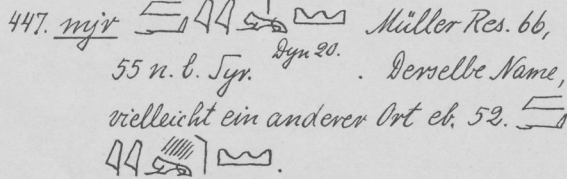 447. mjr Müller Res. 66,
55 n. l. Syr. Dyn 20. . Derselbe Name,
vielleicht ein anderer Ort eb. 52.
.